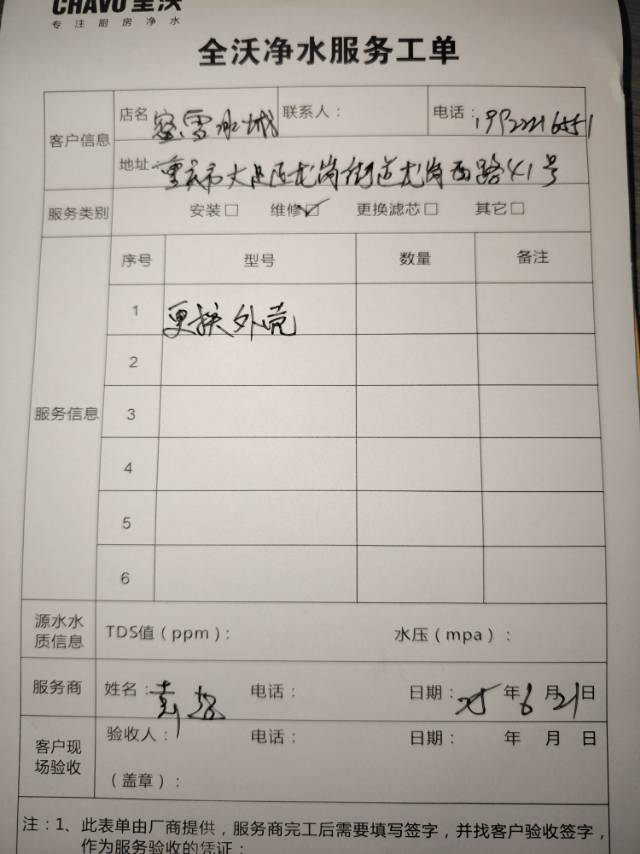 CHAVO 全沃
专注厨房净水
全沃净水服务工单
客户信息 店名 蜜雪冰城 联系人： 电话：
地址 重庆市大足区龙岗街道龙岗西路41号
服务类别 安装□ 维修☑ 更换滤芯□ 其它□
服务信息 序号 型号 数量 备注
1 更换外壳
2
3
4
5
6
源水水质信息 TDS值（ppm）： 水压（mpa）：
服务商 姓名： 电话： 日期：25年6月21日
客户现场验收 验收人： 电话： 日期： 年 月 日
（盖章）：
注：1、此表单由厂商提供，服务商完工后需要填写签字，并找客户验收签字，
作为服务验收的凭证；